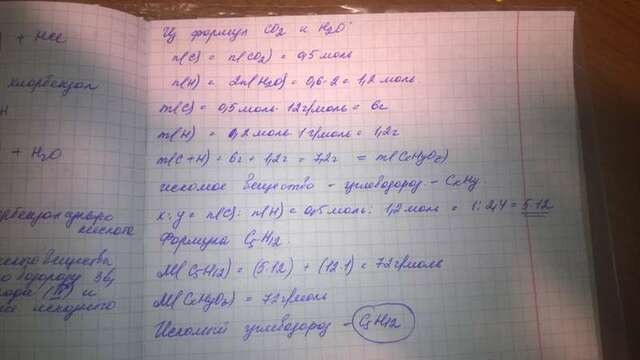 + HCl
хлорбензол
+ H₂O
кислота
Из формул CO₂ и H₂O
n(C) = n(CO₂) = 0,5 моль
n(H) = 2n(H₂O) = 0,6·2 = 1,2 моль
m(C) = 0,5 моль · 12 г/моль = 6г
m(H) = 0,2 моль · 1 г/моль = 1,2г
m(C+H) = 6г + 1,2г = 7,2г = m(CxHyOz)
искомое вещество - углеводород - CxHy
x:y = n(C) : n(H) = 0,5 моль : 1,2 моль = 1:2,4 = 5:12
Формула C₅H₁₂
M(C₅H₁₂) = (5·12) + (12·1) = 72 г/моль
M(CxHyOz) = 72 г/моль
Искомый углеводород - C₅H₁₂